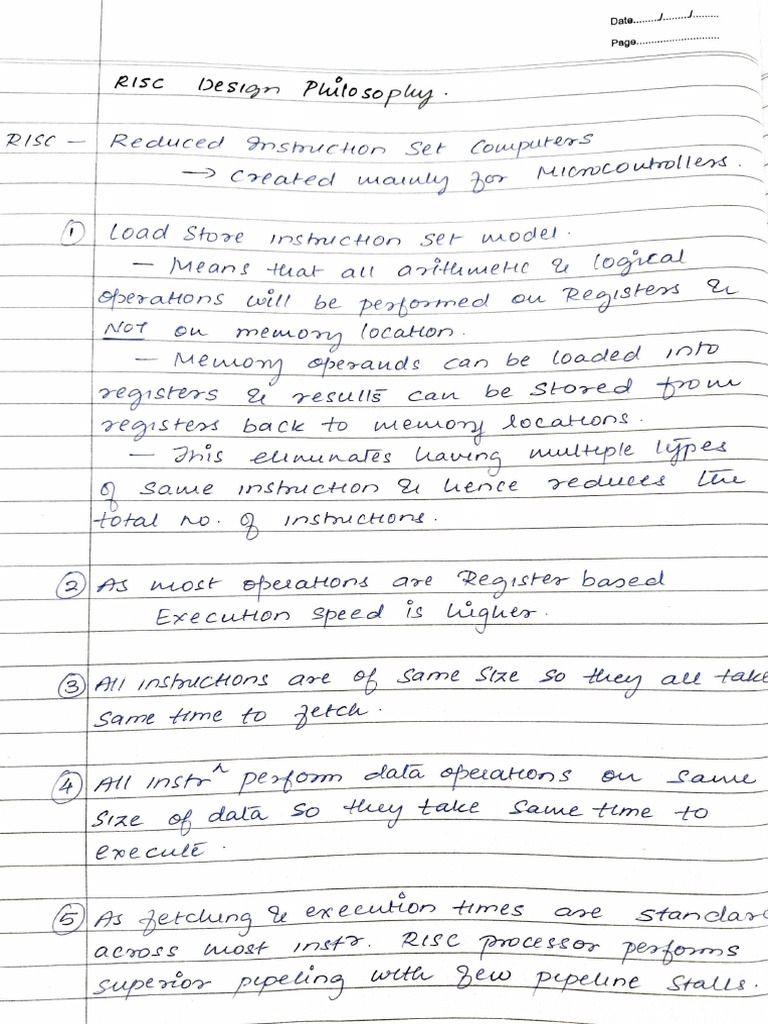 Date......../......../........
Page............................
RISC Design Philosophy.
RISC - Reduced Instruction Set Computers
→ Created mainly for Microcontrollers.
① Load Store instruction set model.
- Means that all arithmetic & logical
operations will be performed on Registers &
NOT on memory location.
- Memory operands can be loaded into
registers & results can be stored from
registers back to memory locations.
- This eliminates having multiple types
of same instruction & hence reduces the
total no. of instructions.
② As most operations are Register based
Execution speed is higher.
③ All instructions are of same size so they all take
same time to fetch.
④ All instrⁿ perform data operations on same
size of data so they take same time to
execute.
⑤ As fetching & execution times are standar
across most instr. RISC processor performs
superior pipeling with few pipeline stalls.